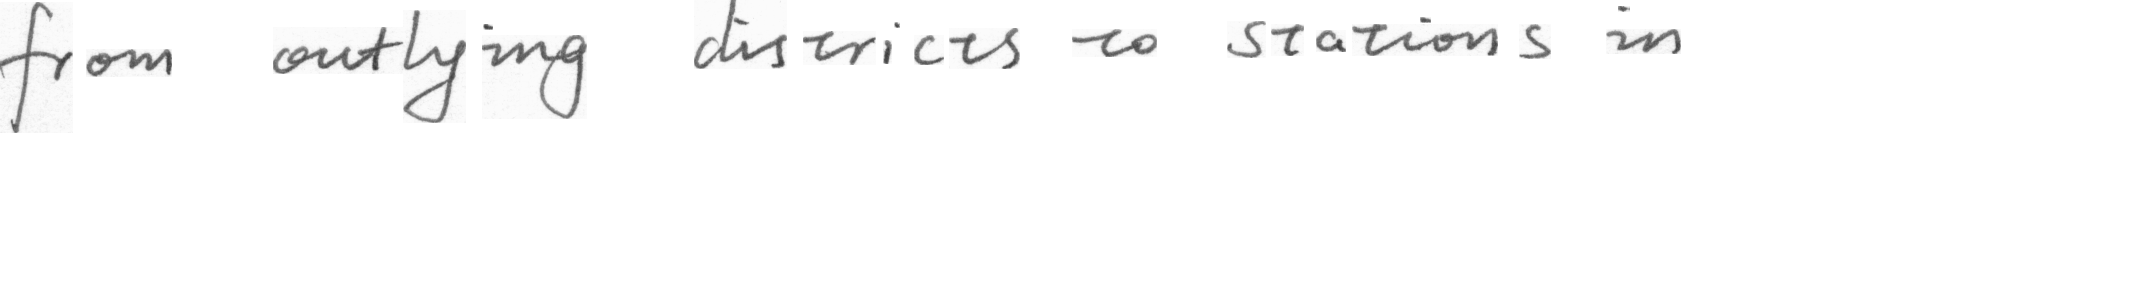 from outlying districts to stations in